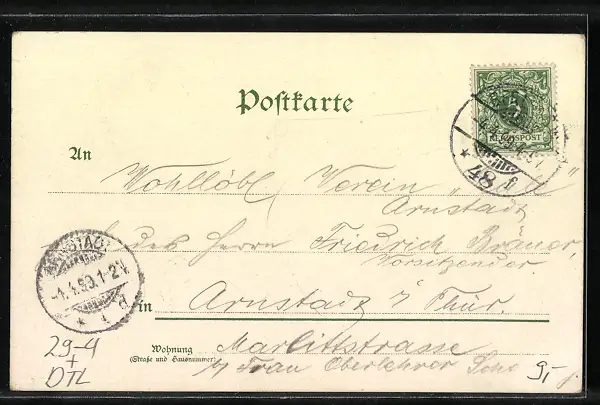 Postkarte
5
REICHSPOST
48
An Wohllöbl. Verein
Arnstadt
des Herrn Friedrich Bräuer,
Vorsitzender
in Arnstadt i/ Thür.
ARNSTADT
1.4.99.1-2N.
* 1 d
Wohnung Marlittstrasse
(Straße und Hausnummer) b/ Frau Oberlehrer
29-4
+
DTL
9,-